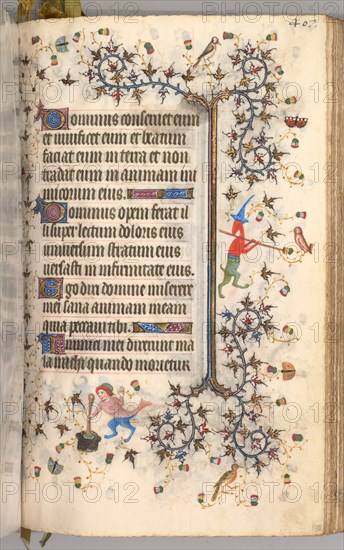 407
Dominus conservet eum
et vivificet eum et beatum
faciat eum in terra et non
tradat eum in animam ini
micorum eius.
Dominus opem ferat il
li super lectum doloris eius
universum stratum eius
versasti in infirmitate eius.
Ego dixi domine miserere
mei sana animam meam
quia peccavi tibi.
Inimici mei dixerunt ma
la michi quando morietur